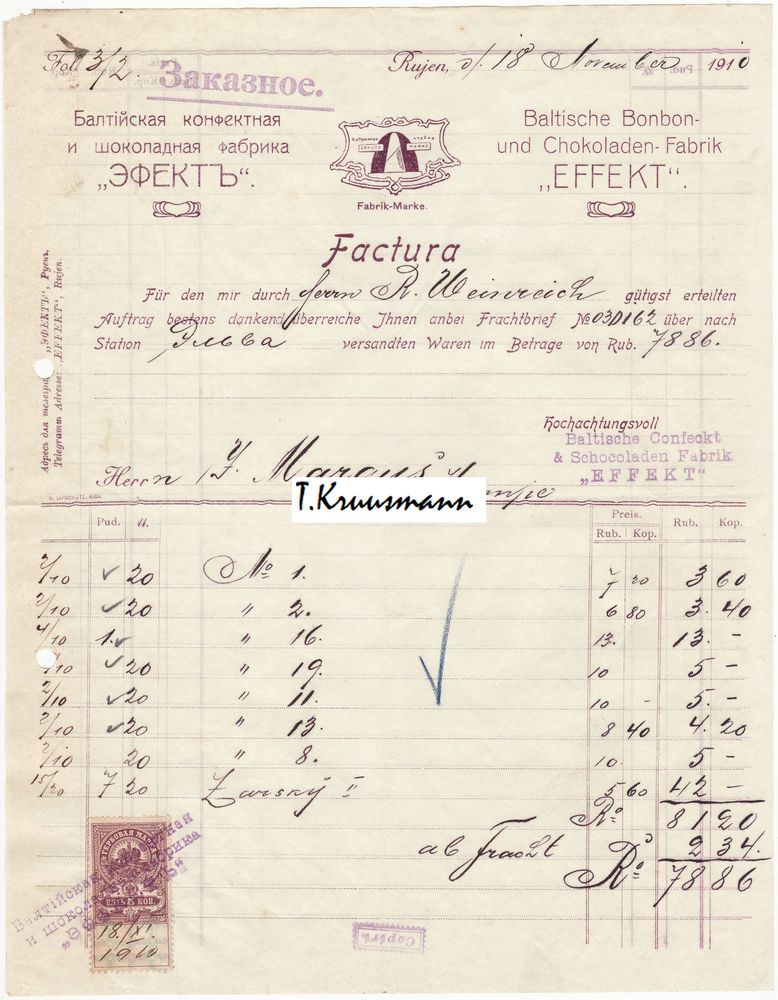 Fol. 3/2.
Заказное.
Rujen, d/. 18 November 1910
Балтійская конфектная
и шоколадная фабрика
„ЭФЕКТЪ“.
Fabrik-Marke.
Baltische Bonbon-
und Chokoladen-Fabrik
„EFFEKT“.
Factura
Für den mir durch Herrn R. Weinreich gütigst erteilten
Auftrag bestens dankend überreiche Jhnen anbei Frachtbrief №030162 über nach
Station Эльва versandten Waren im Betrage von Rub. 7886.
Адресъ для телегра „ЭФЕКТЪ“, Руенъ.
Telegramm Adresse: „EFFEKT“, Rujen.
Hochachtungsvoll
Baltische Confeckt
& Schoccoladen Fabrik
„EFFEKT“
Herrn J. Margus
T.Kruusmann
Pud. ℔. Preis. Rub. Kop.
Rub. Kop.
2/10 20 № 1. 7 20 3 60
2/10 20 „ 2. 6 80 3. 40
4/10 1. „ 16. 13. 13. –
2/10 20 „ 19. 10 5 –
2/10 20 „ 11. 10 – 5. –
2/10 20 „ 13. 8 40 4. 20
2/10 20 „ 8. 10. 5 –
15/20 7 20 Zarsky II 5 60 42 –
Ro 81 20
ab Fracht 2 34.
Ro 78 86
Балтійская
и шоколадная фабрика
ПЯТЬ 5 КОП.
18./XI.
1910
Copirt.